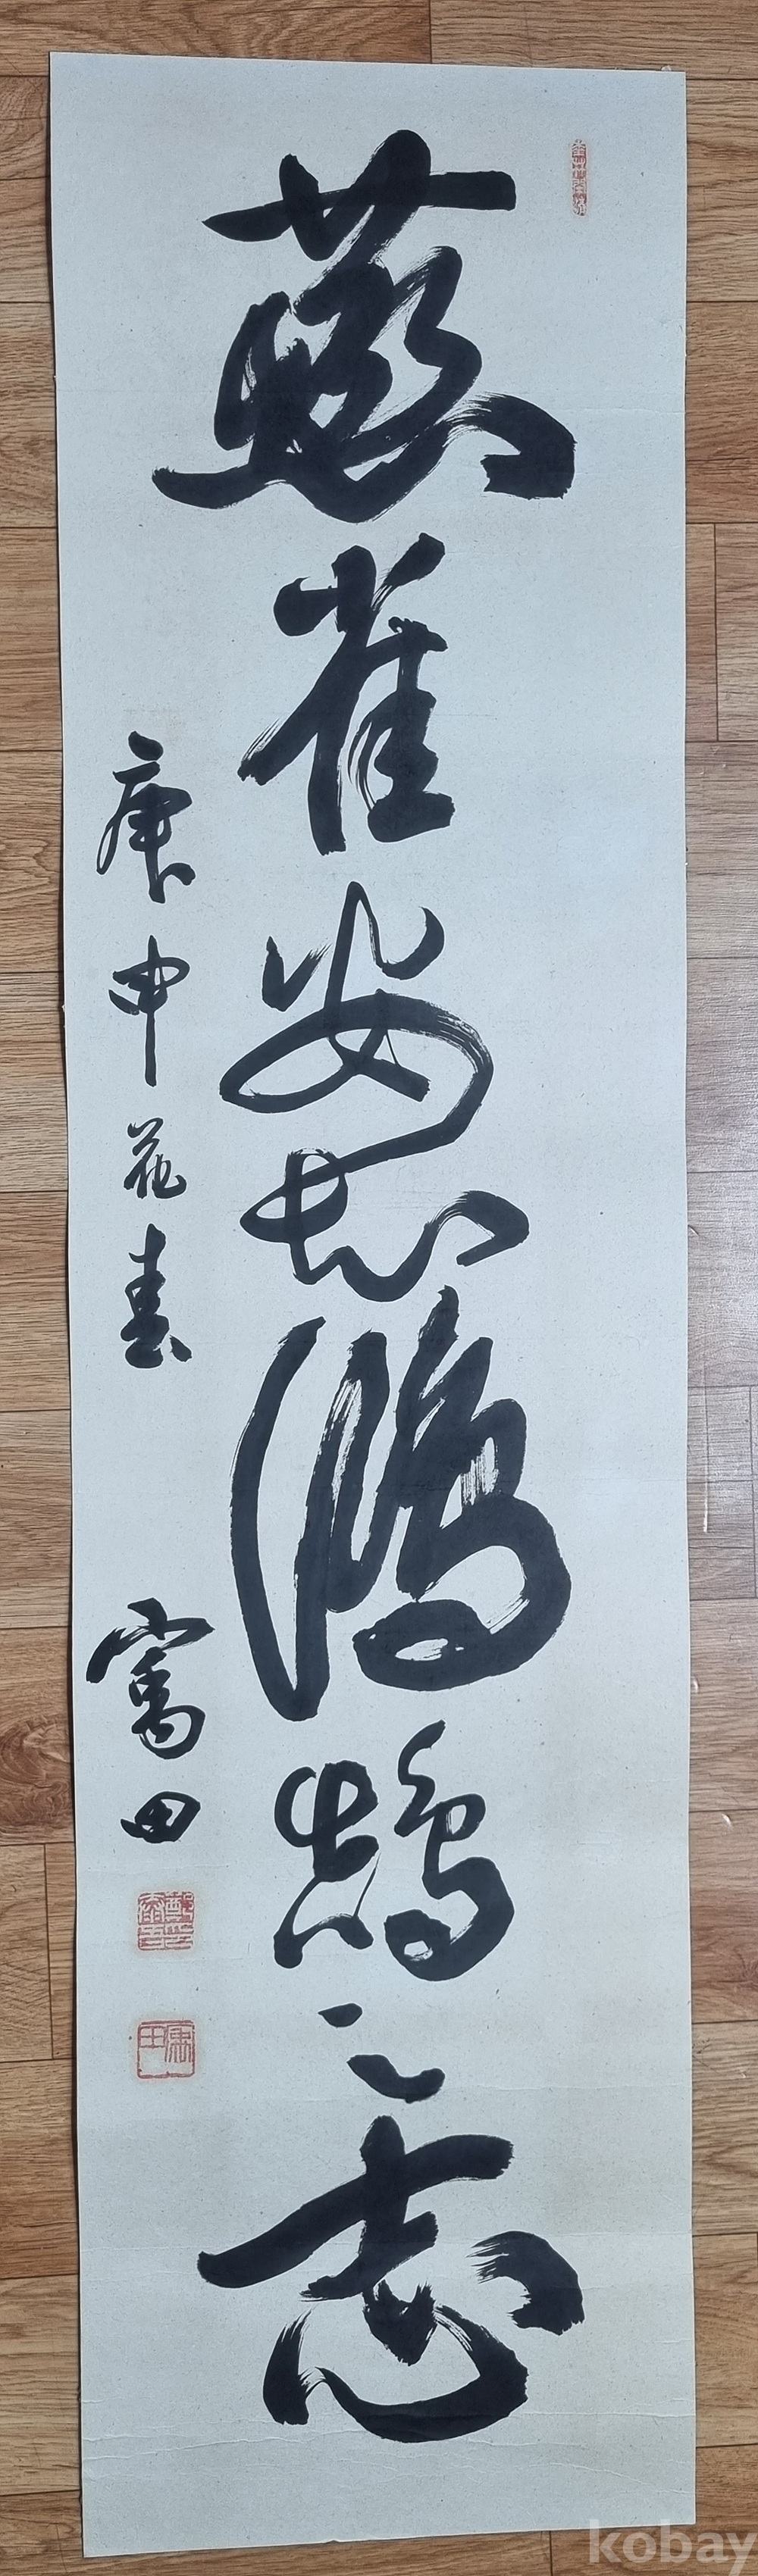 燕雀安知鴻鵠之志
庚申花春
富田
kobay